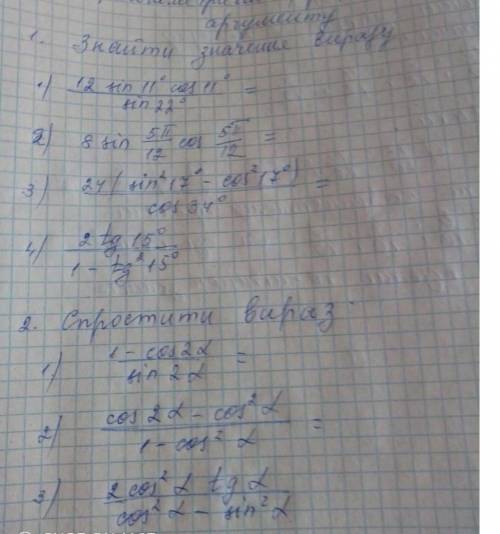 аргументу
1. Знайти значення виразу
1) 12 sin 11° cos 11° / sin 22° =
2) 8 sin 5π/12 cos 5π/12 =
3) 24 ( sin² 17° - cos² 17° ) / cos 34° =
4) 2 tg 15° / 1 - tg² 15°
2. Спростити вираз
1) 1 - cos 2α / sin 2α =
2) cos 2α - cos² α / 1 - cos² α =
3) 2 cos² α tg α / cos² α - sin² α